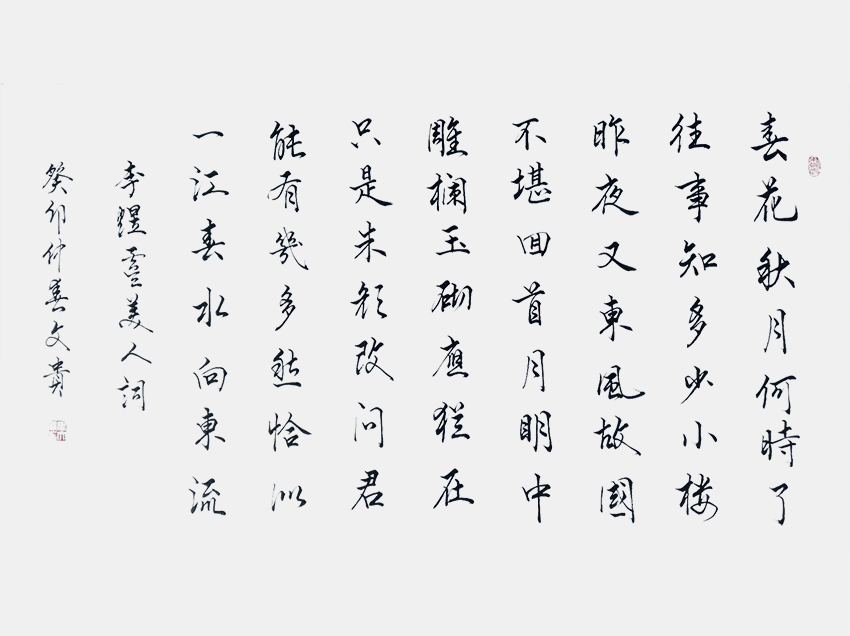 春花秋月何時了
往事知多少小楼
昨夜又東風故國
不堪回首月明中
雕欄玉砌應猶在
只是朱顏改问君
能有幾多愁恰似
一江春水向東流
李煜虞美人詞
癸卯仲春文貴